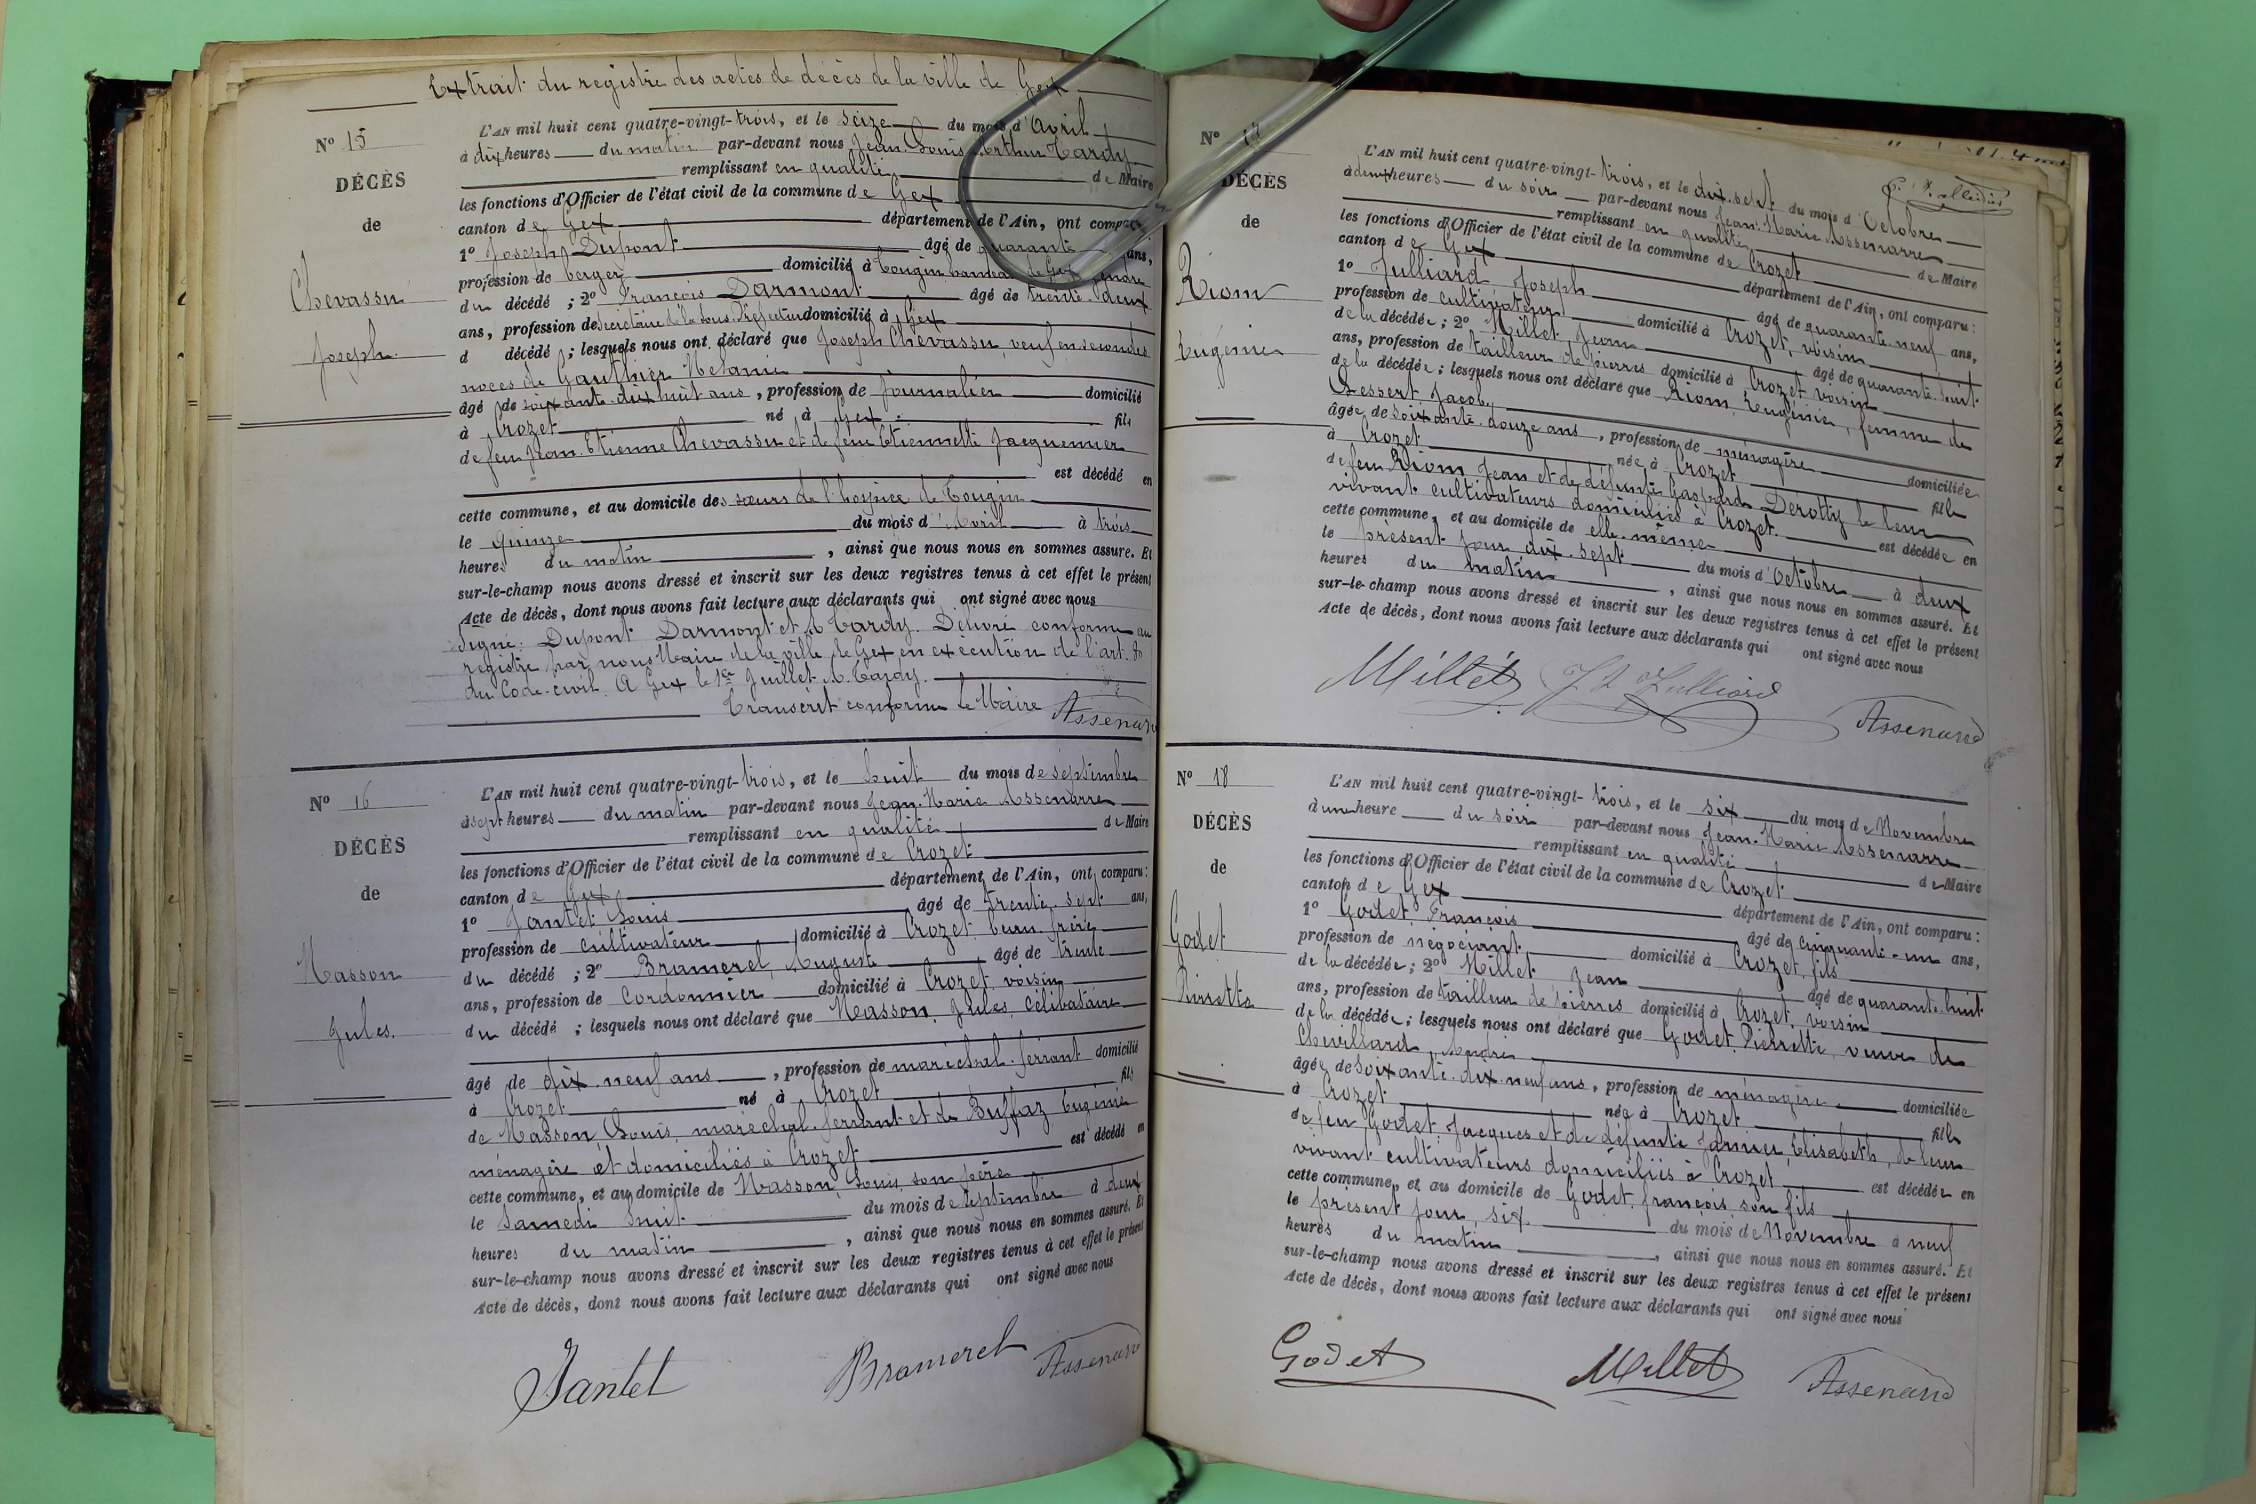 Extrait du registre des actes de décès de la ville de Gex
N° 15
DÉCÈS
de
Chevassu
Joseph.
L'AN mil huit cent quatre-vingt-trois, et le seize du mois d'Avril
à dix heures du matin par-devant nous Jean Louis Arthur Tardy
remplissant en qualité de Maire
les fonctions d'Officier de l'état civil de la commune de Gex
canton de Gex département de l'Ain, ont comparu:
1° Joseph Dupont âgé de quarante ans,
profession de berger domicilié à Tougin de Gex
du décédé ; 2° François Darmont âgé de trente deux
ans, profession de Secrétaire de la Sous-Préfecture domicilié à Gex
d décédé ; lesquels nous ont déclaré que Joseph Chevassu, veuf en secondes
noces de Gauthier Mélanie
âgé de soixante dix huit ans, profession de journalier domicilié
à Crozet né à Gex fils
de feu Jean Etienne Chevassu et de feue Etiennette Jacquemier
est décédé en
cette commune, et au domicile des sœurs de l'hospice de Tougin
le quinze du mois d'Avril à trois
heures du matin, ainsi que nous nous en sommes assuré. Et
sur-le-champ nous avons dressé et inscrit sur les deux registres tenus à cet effet le présent
Acte de décès, dont nous avons fait lecture aux déclarants qui ont signé avec nous
Signé: Dupont Darmont et A Tardy. Délivré conforme au
registre par nous Maire de la ville de Gex en exécution de l'art. 80
du Code-civil. A Gex le 1er Juillet A. Tardy.
Transcrit conforme le Maire Assenare
N° 16
DÉCÈS
de
Masson
Jules.
L'AN mil huit cent quatre-vingt-trois, et le huit du mois de septembre
à sept heures du matin par-devant nous Jean-Marie Assenarre
remplissant en qualité de Maire
les fonctions d'Officier de l'état civil de la commune de Crozet
canton de Gex département de l'Ain, ont comparu:
1° Jantet Louis âgé de trente-sept ans,
profession de cultivateur domicilié à Crozet, beau-frère
du décédé ; 2° Bramerel, Auguste âgé de trente
ans, profession de Cordonnier domicilié à Crozet voisin
du décédé ; lesquels nous ont déclaré que Masson, Jules, Célibataire
âgé de dix-neuf ans, profession de maréchal-ferrant domicilié
à Crozet né à Crozet fils
de Masson, Louis, maréchal-ferrant et de Buffaz Eugénie
ménagère et domiciliés à Crozet est décédé en
cette commune, et au domicile de Masson Louis, son père
le Samedi huit du mois de septembre à deux
heures du matin, ainsi que nous nous en sommes assuré. Et
sur-le-champ nous avons dressé et inscrit sur les deux registres tenus à cet effet le présent
Acte de décès, dont nous avons fait lecture aux déclarants qui ont signé avec nous
Jantet Bramerel Assenare
N° 17
DÉCÈS
de
Riom
Eugénie
L'AN mil huit cent quatre-vingt-trois, et le dix-sept du mois d'Octobre
à deux heures du soir par-devant nous Jean-Marie Assenarre
remplissant en qualité de Maire
les fonctions d'Officier de l'état civil de la commune de Crozet
canton de Gex département de l'Ain, ont comparu:
1° Julliard Joseph âgé de quarante-neuf ans,
profession de cultivateur domicilié à Crozet, voisin
de la décédée; 2° Millet Jean âgé de quarante-huit
ans, profession de tailleur de pierres domicilié à Crozet voisin
de la décédée; lesquels nous ont déclaré que Riom, Eugénie, femme de
Dessert Jacob,
âgée de soixante-douze ans, profession de ménagère domiciliée
à Crozet née à Crozet fille
de feu Riom Jean et de défunte Gaspard Derotty de leur
vivant cultivateurs domiciliés à Crozet. est décédée en
cette commune, et au domicile de elle-même
le présent jour dix-sept du mois d'Octobre à deux
heures du matin, ainsi que nous nous en sommes assuré. Et
sur-le-champ nous avons dressé et inscrit sur les deux registres tenus à cet effet le présent
Acte de décès, dont nous avons fait lecture aux déclarants qui ont signé avec nous
Millet J Julliard Assenare
N° 18
DÉCÈS
de
Godet
Pierrette
L'AN mil huit cent quatre-vingt-trois, et le six du mois de Novembre
à une heure du soir par-devant nous Jean-Marie Assenarre
remplissant en qualité de Maire
les fonctions d'Officier de l'état civil de la commune de Crozet
canton de Gex département de l'Ain, ont comparu:
1° Godet François âgé de cinquante-un ans,
profession de négociant domicilié à Crozet, fils
de la décédée; 2° Millet Jean âgé de quarante-huit
ans, profession de tailleur de pierres domicilié à Crozet, voisin
de la décédée; lesquels nous ont déclaré que Godet, Pierrette, veuve de
Chevillard, André
âgée de soixante-dix-neuf ans, profession de ménagère domiciliée
à Crozet née à Crozet fille
de feu Godet, Jacques et de défunte Jarnier, Elisabeth, de leur
vivant cultivateurs domiciliés à Crozet est décédée en
cette commune, et au domicile de Godet, françois, son fils
le présent jour, six du mois de Novembre à neuf
heures du matin, ainsi que nous nous en sommes assuré. Et
sur-le-champ nous avons dressé et inscrit sur les deux registres tenus à cet effet le présent
Acte de décès, dont nous avons fait lecture aux déclarants qui ont signé avec nous
Godet Millet Assenare